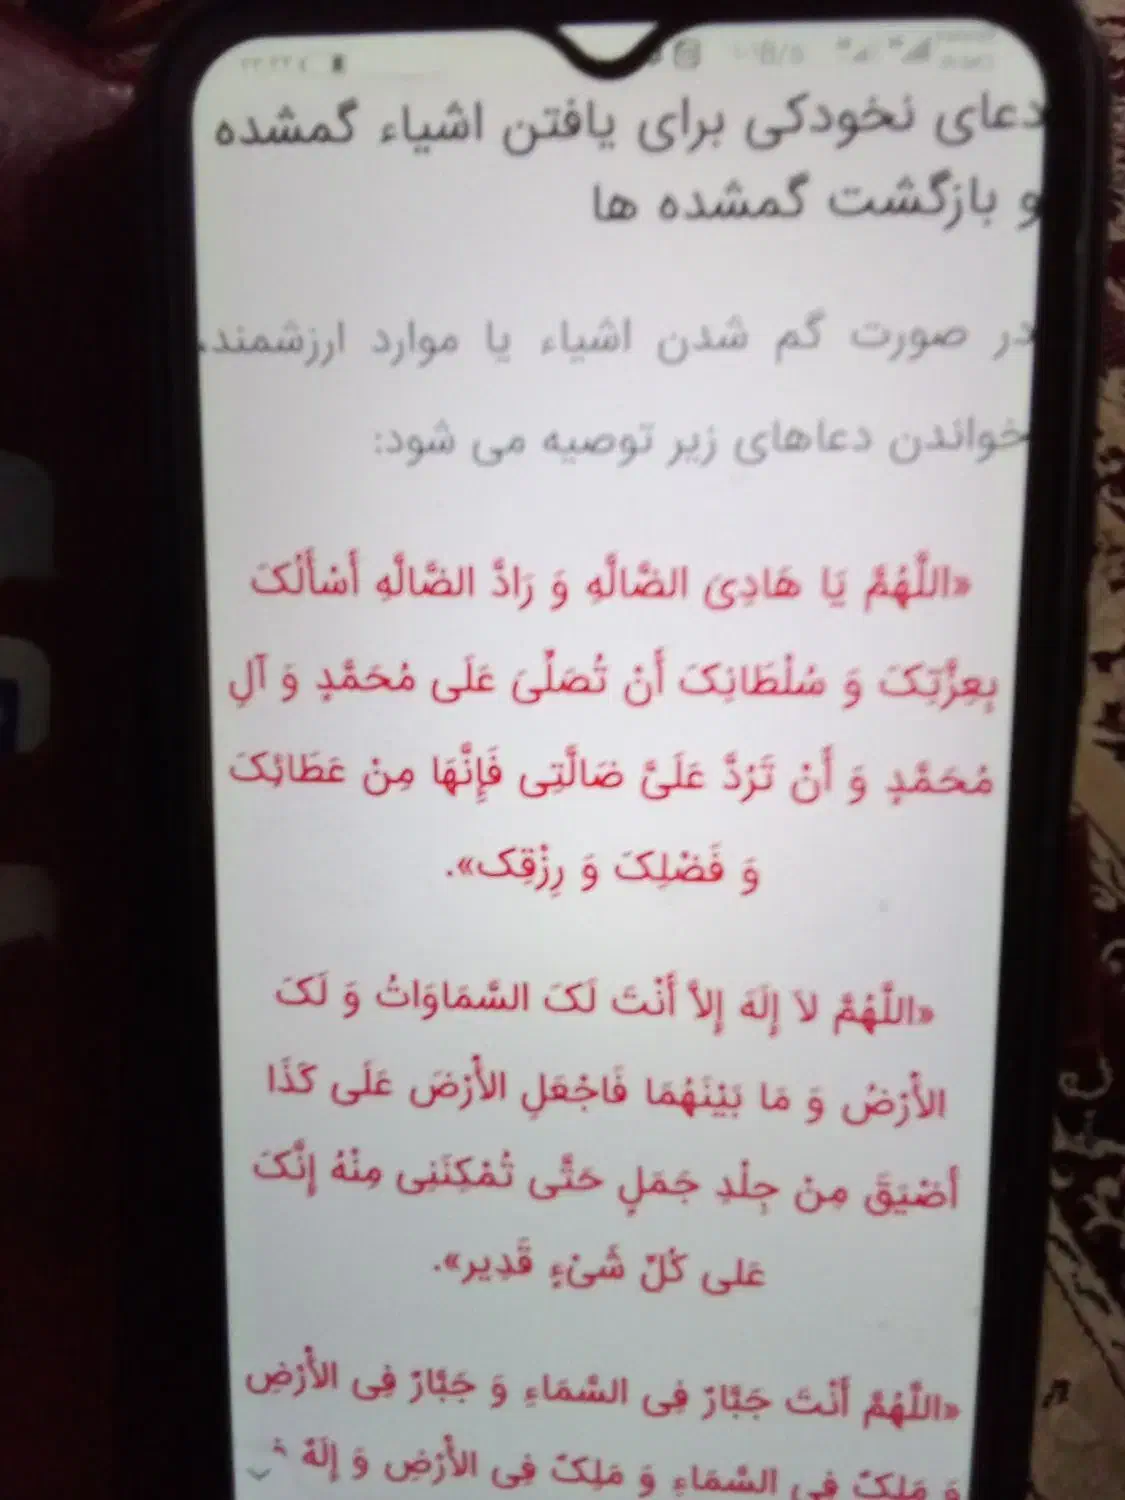 دعای نخودکی برای یافتن اشیاء گمشده
و بازگشت گمشده ها
در صورت گم شدن اشیاء یا موارد ارزشمند،
خواندن دعاهای زیر توصیه می شود:
«اللَّهُمَّ يَا هَادِىَ الضَّالَّهِ وَ رَادَّ الضَّالَّهِ أَسْأَلُکَ
بِعِزَّتِکَ وَ سُلْطَانِکَ أَنْ تُصَلِّىَ عَلَى مُحَمَّدٍ وَ آلِ
مُحَمَّدٍ وَ أَنْ تَرُدَّ عَلَىَّ ضَالَّتِى فَإِنَّهَا مِنْ عَطَائِکَ
وَ فَضْلِکَ وَ رِزْقِک».
«اللَّهُمَّ لاَ إِلَهَ إِلاَّ أَنْتَ لَکَ السَّمَاوَاتُ وَ لَکَ
الأَْرْضُ وَ مَا بَيْنَهُمَا فَاجْعَلِ الأَْرْضَ عَلَى کَذَا
أَضْيَقَ مِنْ جِلْدِ جَمَلٍ حَتَّى تُمْکِنَنِى مِنْهُ إِنَّکَ
عَلى کُلِّ شَىْءٍ قَدِير».
«اللَّهُمَّ أَنْتَ جَبَّارٌ فِى السَّمَاءِ وَ جَبَّارٌ فِى الأَْرْضِ
وَ مَلِکٌ فِى السَّمَاءِ وَ مَلِکٌ فِى الأَْرْضِ وَ إِلَهٌ